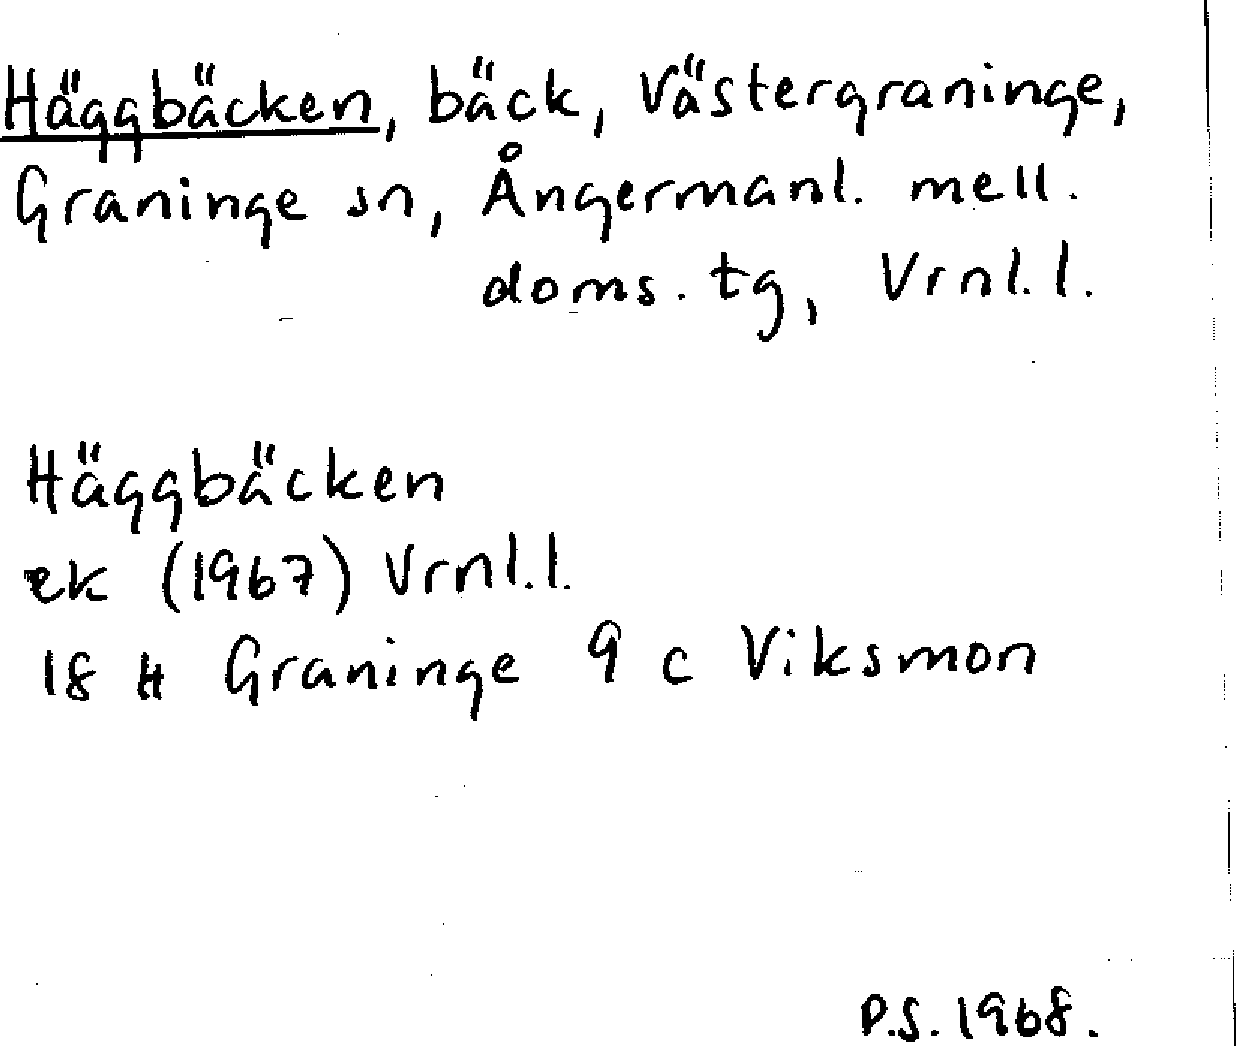 Häggbäcken, bäck, Västergraninge,
Graninge sn, Ångermanl. mell.
doms. tg, Vrnl. l.
Häggbäcken
ek (1967) Vrnl. l.
18 H Graninge 9 c Viksmon
P.S. 1968.